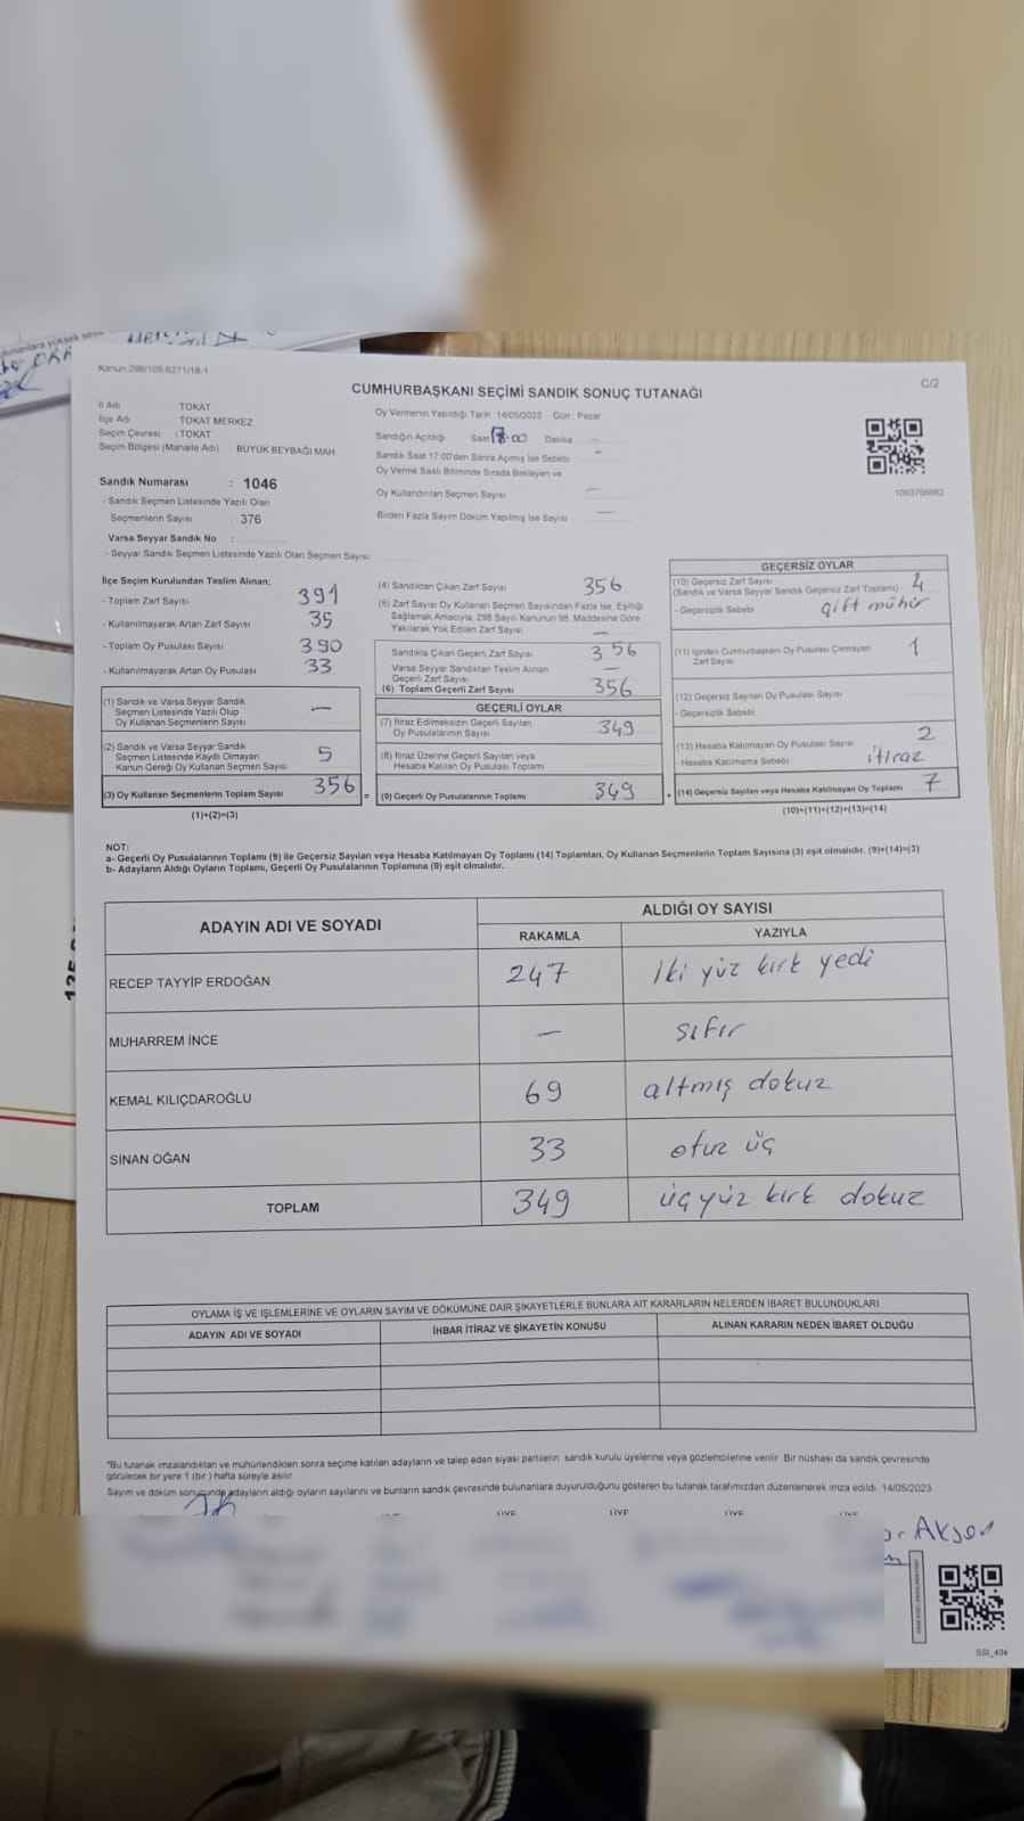 Kanun 298/105-6271/18-1
C/2
CUMHURBAŞKANI SEÇİMİ SANDIK SONUÇ TUTANAĞI
İl Adı TOKAT
İlçe Adı TOKAT MERKEZ
Seçim Çevresi : TOKAT
Seçim Bölgesi (Mahalle Adı) BÜYÜK BEYBAĞI MAH.
Sandık Numarası : 1046
- Sandık Seçmen Listesinde Yazılı Olan
Seçmenlerin Sayısı 376
Varsa Seyyar Sandık No :
- Seyyar Sandık Seçmen Listesinde Yazılı Olan Seçmen Sayısı
Oy Vermenin Yapıldığı Tarih: 14/05/2023 Gün: Pazar
Sandığın Açıldığı Saat Dakika
Sandık Saat 17:00'den Sonra Açılmış İse Sebebi
Oy Verme Saati Bitiminde Sırada Bekleyen ve
Oy Kullandırılan Seçmen Sayısı
Birden Fazla Sayım Döküm Yapılmış İse Sayısı
İlçe Seçim Kurulundan Teslim Alınan;
- Toplam Zarf Sayısı 391
- Kullanılmayarak Artan Zarf Sayısı 35
- Toplam Oy Pusulası Sayısı 390
- Kullanılmayarak Artan Oy Pusulası 33
(1) Sandık ve Varsa Seyyar Sandık
Seçmen Listesinde Yazılı Olup
Oy Kullanan Seçmenlerin Sayısı —
(2) Sandık ve Varsa Seyyar Sandık
Seçmen Listesinde Kayıtlı Olmayan
Kanun Gereği Oy Kullanan Seçmen Sayısı 5
(3) Oy Kullanan Seçmenlerin Toplam Sayısı 356
(1)+(2)=(3)
(4) Sandıktan Çıkan Zarf Sayısı 356
(5) Zarf Sayısı Oy Kullanan Seçmen Sayısından Fazla İse, Eşitliği
Sağlamak Amacıyla, 298 Sayılı Kanunun 98. Maddesine Göre
Yakılarak Yok Edilen Zarf Sayısı —
Sandıkta Çıkan Geçerli Zarf Sayısı 356
Varsa Seyyar Sandıktan Teslim Alınan
Geçerli Zarf Sayısı —
(6) Toplam Geçerli Zarf Sayısı 356
GEÇERLİ OYLAR
(7) İtiraz Edilmeksizin Geçerli Sayılan
Oy Pusulalarının Sayısı 349
(8) İtiraz Üzerine Geçerli Sayılan veya
Hesaba Katılan Oy Pusulası Toplamı
= (9) Geçerli Oy Pusulalarının Toplamı 349
GEÇERSİZ OYLAR
(10) Geçersiz Zarf Sayısı
(Sandık ve Varsa Seyyar Sandık Geçersiz Zarf Toplamı) 4
- Geçersizlik Sebebi çift mühür
(11) İçinden Cumhurbaşkanı Oy Pusulası Çıkmayan
Zarf Sayısı 1
(12) Geçersiz Sayılan Oy Pusulası Sayısı
- Geçersizlik Sebebi
(13) Hesaba Katılmayan Oy Pusulası Sayısı 2
- Hesaba Katılmama Sebebi itiraz
+ (14) Geçersiz Sayılan veya Hesaba Katılmayan Oy Toplamı 7
(10)+(11)+(12)+(13)=(14)
NOT:
a- Geçerli Oy Pusulalarının Toplamı (9) ile Geçersiz Sayılan veya Hesaba Katılmayan Oy Toplamı (14) Toplamları, Oy Kullanan Seçmenlerin Toplam Sayısına (3) eşit olmalıdır. (9)+(14)=(3)
b- Adayların Aldığı Oyların Toplamı, Geçerli Oy Pusulalarının Toplamına (9) eşit olmalıdır.
ADAYIN ADI VE SOYADI ALDIĞI OY SAYISI
RAKAMLA YAZIYLA
RECEP TAYYİP ERDOĞAN 247 iki yüz kırk yedi
MUHARREM İNCE — sıfır
KEMAL KILIÇDAROĞLU 69 altmış dokuz
SİNAN OĞAN 33 otuz üç
TOPLAM 349 üçyüz kırk dokuz
OYLAMA İŞ VE İŞLEMLERİNE VE OYLARIN SAYIM VE DÖKÜMÜNE DAİR ŞİKAYETLERLE BUNLARA AİT KARARLARIN NELERDEN İBARET BULUNDUKLARI
ADAYIN ADI VE SOYADI İHBAR İTİRAZ VE ŞİKAYETİN KONUSU ALINAN KARARIN NEDEN İBARET OLDUĞU
*Bu tutanak imzalandıktan ve mühürlendikten sonra seçime katılan adayların ve talep eden siyasi partilerin sandık kurulu üyelerine veya gözlemcilerine verilir. Bir nüshası da sandık çevresinde
görülecek bir yere 1 (bir) hafta süreyle asılır.
Sayım ve döküm sonucunda adayların aldığı oyların sayılarını ve bunların sandık çevresinde bulunanlara duyurulduğunu gösteren bu tutanak tarafımızdan düzenlenerek imza edildi. 14/05/2023